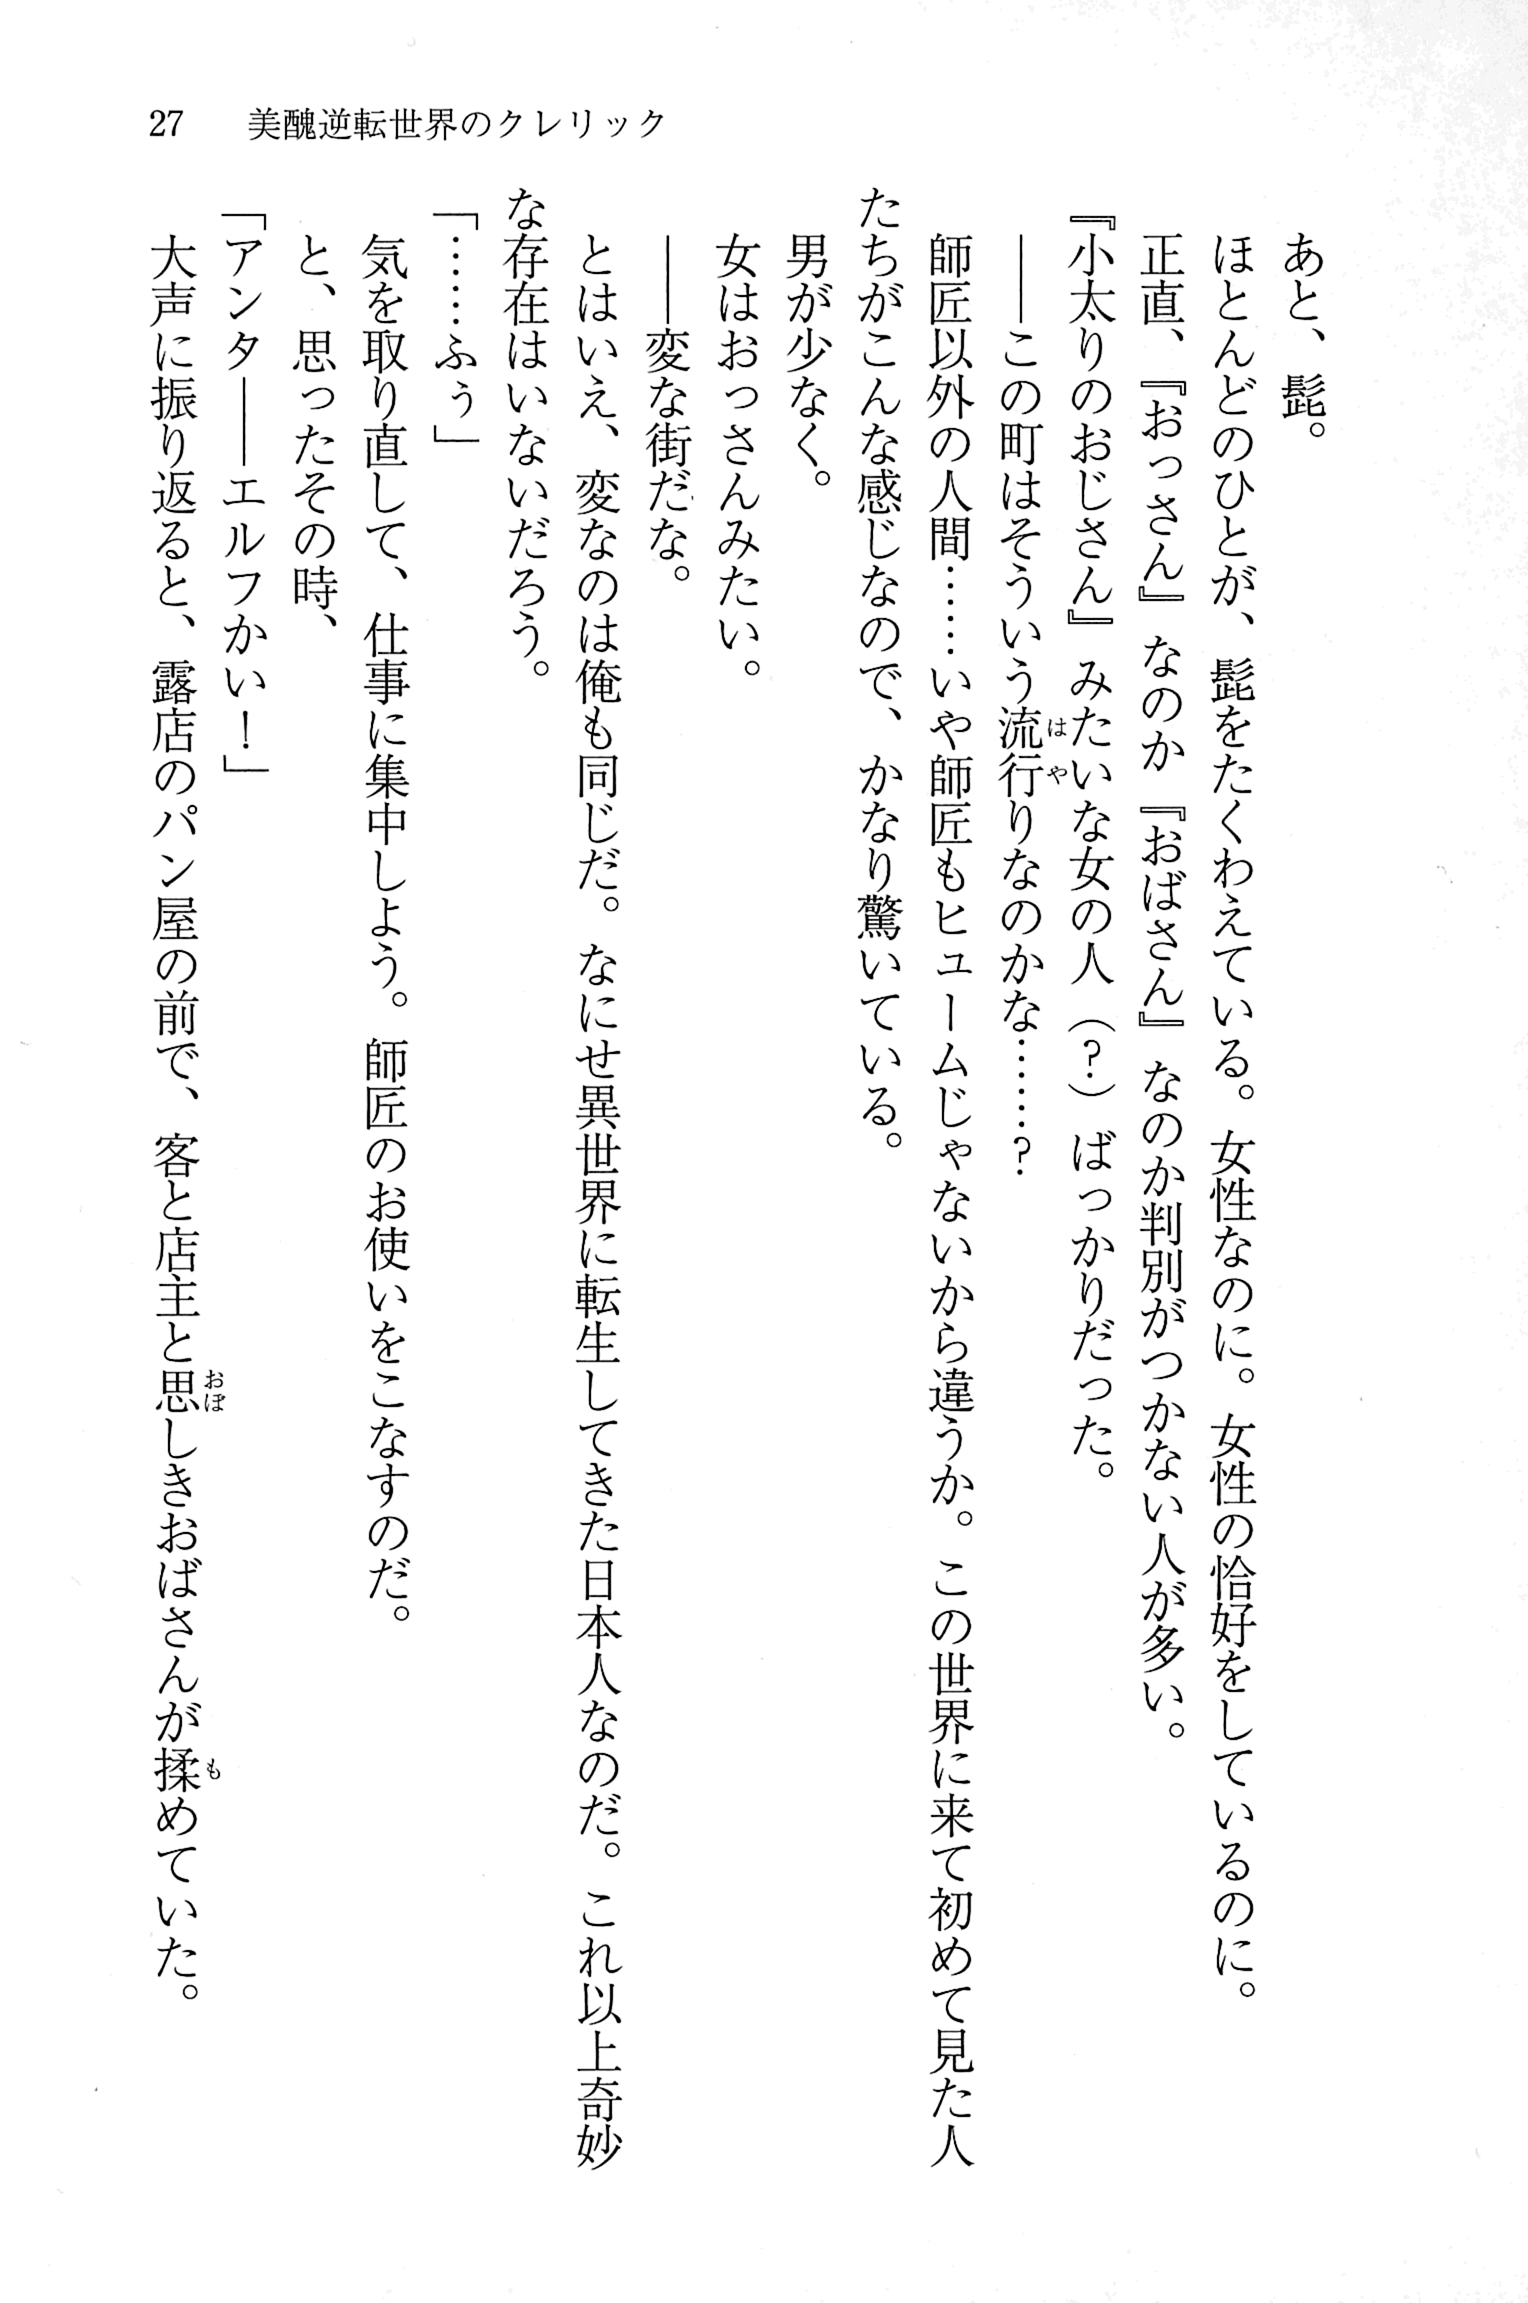 27　美醜逆転世界のクレリック
あと、髭。
ほとんどのひとが、髭をたくわえている。女性なのに。女性の恰好をしているのに。
正直、『おっさん』なのか『おばさん』なのか判別がつかない人が多い。
『小太りのおじさん』みたいな女の人（？）ばっかりだった。
――この町はそういう流行りなのかな………？
師匠以外の人間……いや師匠もヒュームじゃないから違うか。この世界に来て初めて見た人
たちがこんな感じなので、かなり驚いている。
男が少なく。
女はおっさんみたい。
――変な街だな。
とはいえ、変なのは俺も同じだ。なにせ異世界に転生してきた日本人なのだ。これ以上奇妙
な存在はいないだろう。
「……ふぅ」
気を取り直して、仕事に集中しよう。師匠のお使いをこなすのだ。
と、思ったその時、
「アンタ――エルフかい！」
大声に振り返ると、露店のパン屋の前で、客と店主と思しきおばさんが揉めていた。